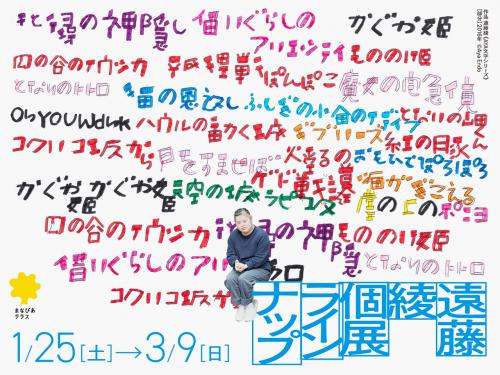 千と千尋の神隠し 借りぐらしの かぐや姫
アリエッティ もののけ姫
風の谷のナウシカ 平成狸合戦ぽんぽこ 魔女の宅急便
となりのトトロ 猫の恩返し ふしぎの海のナディア となりの山田くん
On YOUR Mark ハウルの動く城 ギブリーズ 紅の豚
コクリコ坂から 耳をすませば 火垂るの おもひでぽろぽろ
かぐや姫 かぐや姫 天空の城ラピュタ ゲド戦記 海がきこえる
崖の上のポニョ
風の谷のナウシカ 千と千尋の神隠し もののけ姫
借りぐらしのアリ となりのトトロ
コクリコ坂から
作品:遠藤綾《AYA文字シリーズ》
[部分] 2018年 ©Aya Endo
まなびあ
テラス
遠藤
綾
個展
ライン
ナップ
1/25[土]→3/9[日]